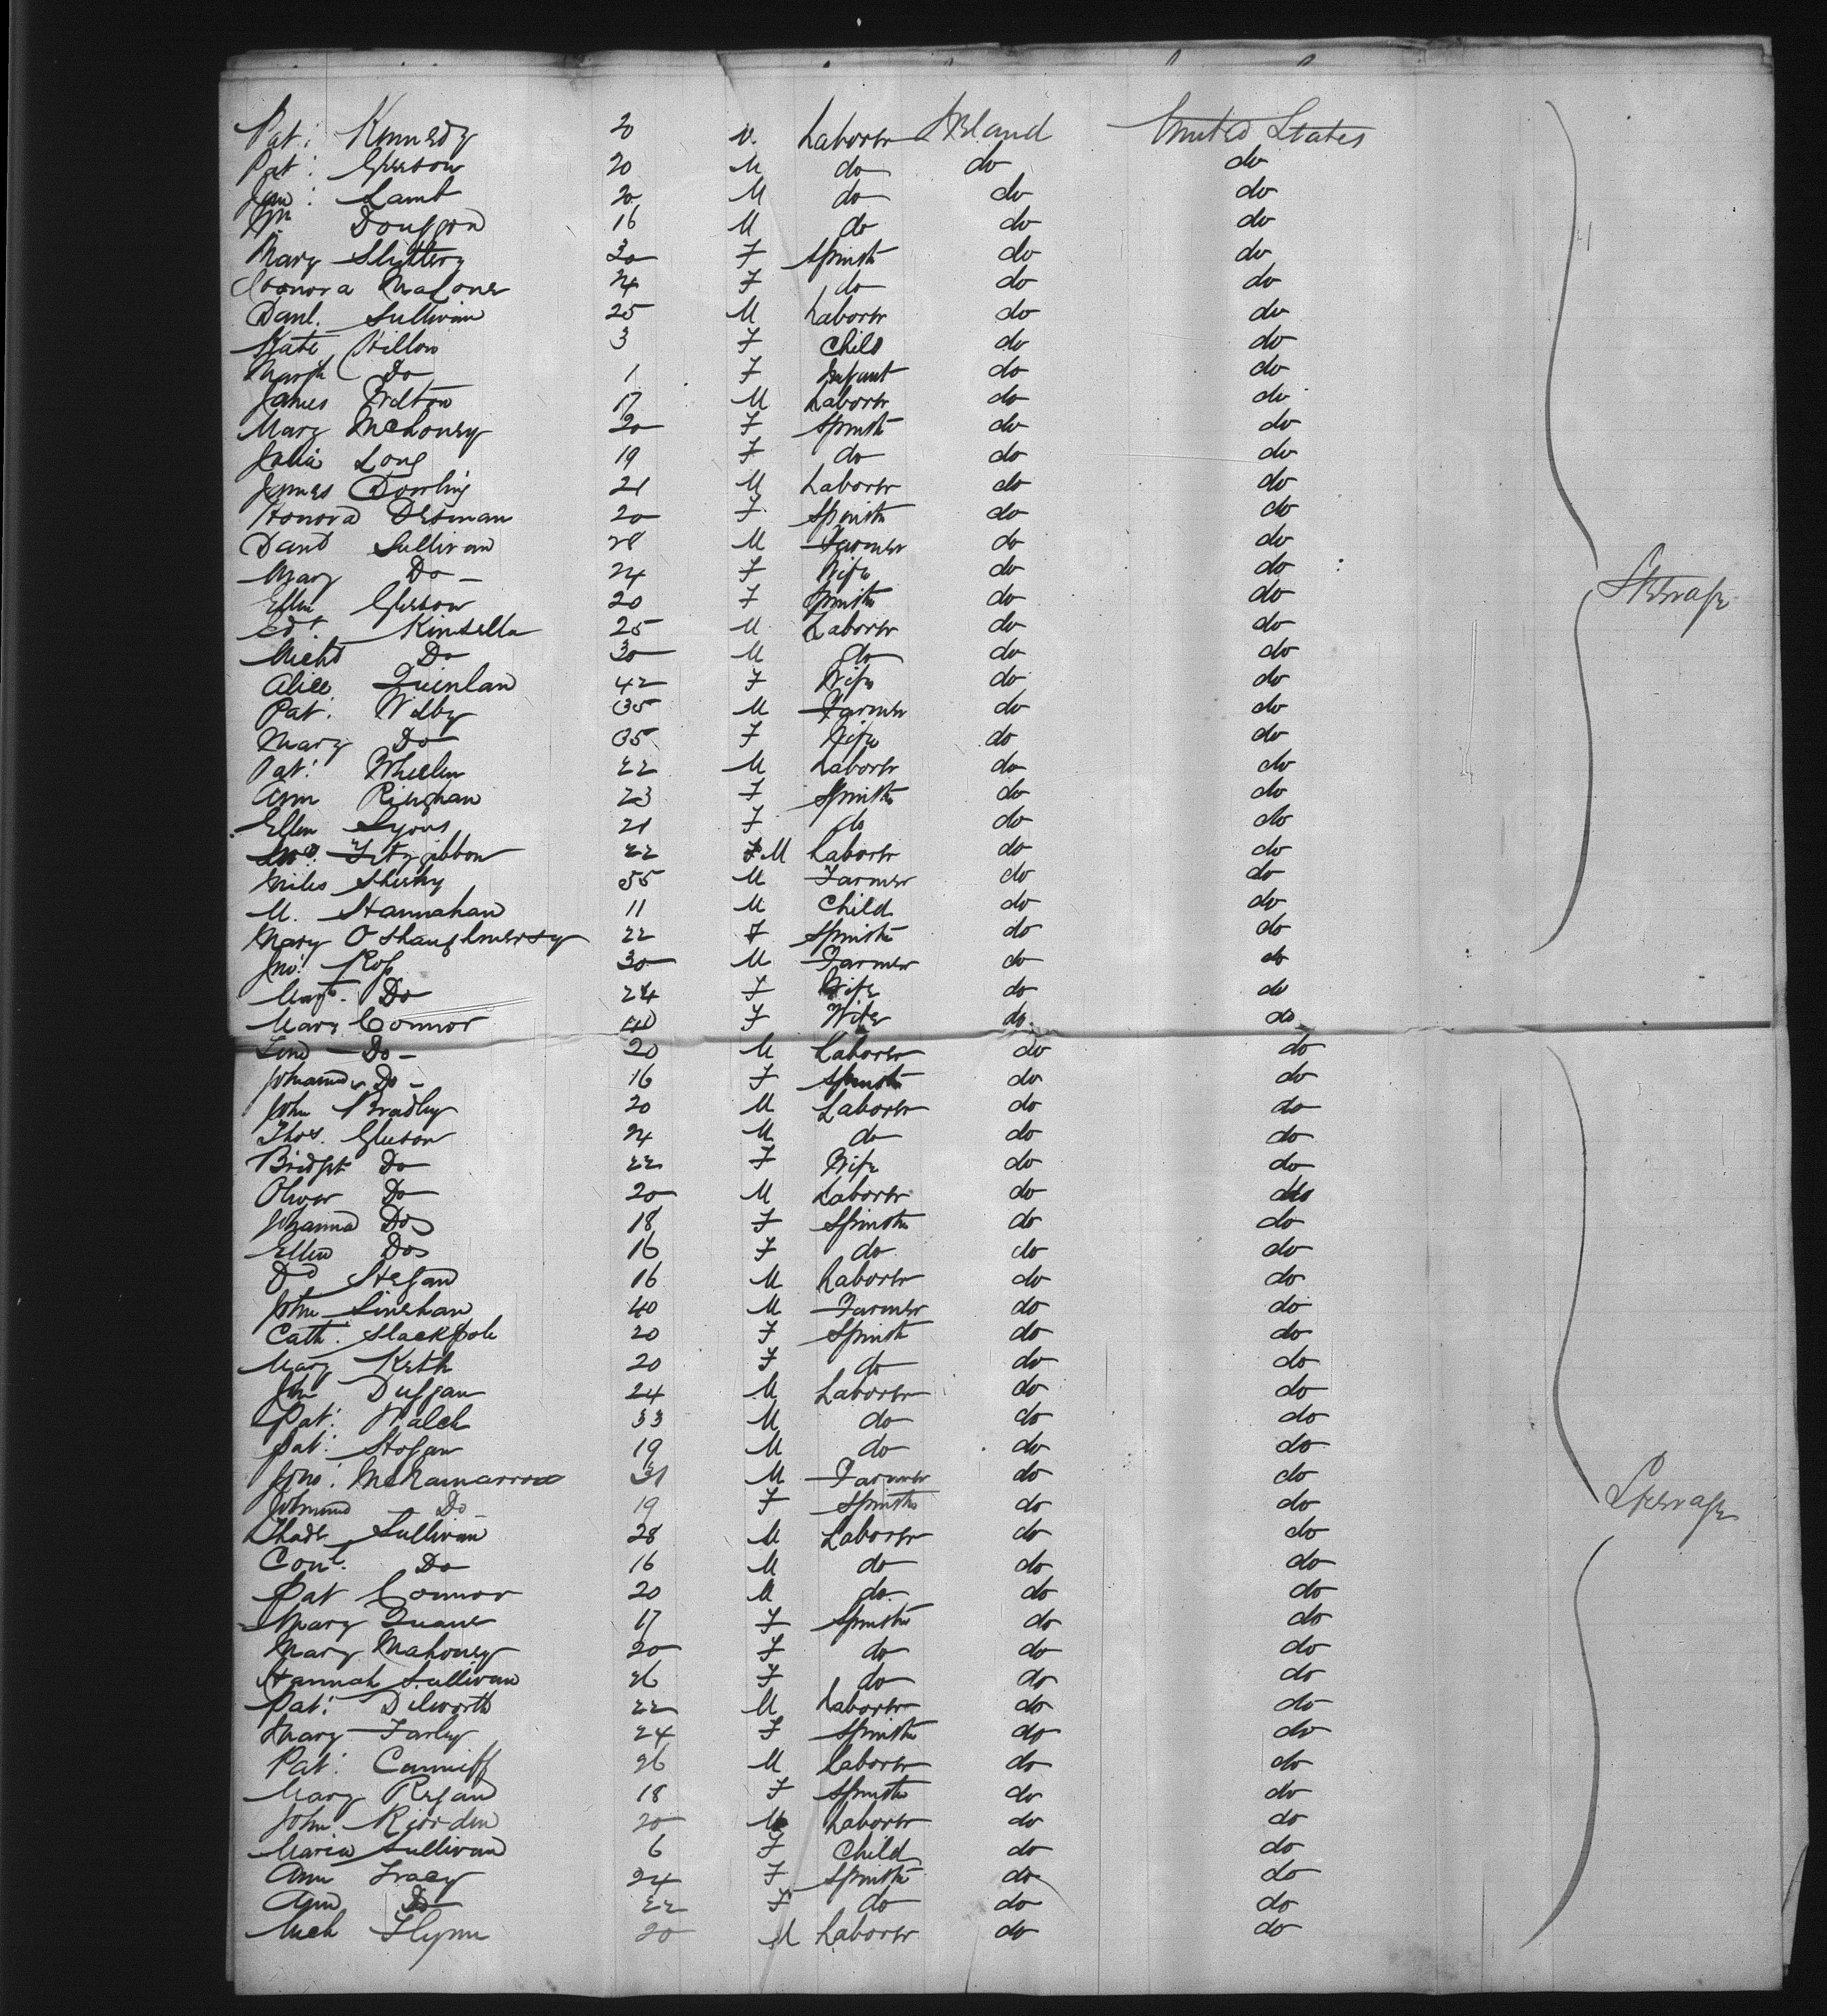 Pat: Kennedy 20 M. Laborer Ireland United States
Pat: Gleeson 20 M do do do
Jas: Lamb 20 M do do do
Jn Douggan 16 M do do do
Mary Slattery 30 F Spinstr do do do
Honora Malone 24 F do do do
Danl. Sullivan 25 M Laborer do do
Kate Hillon 3 F Child do do
Margt Do 1 F Infant do do
James Wilton 17 M Laborer do do
Mary McHoney 20 F Spinstr do do
Julia Long 19 F do do do
James Dowling 21 M Laborer do do
Honora Desman 20 F Spinstr do do
Danl Sullivan 28 M Farmer do do
Mary Do 24 F Wife do do
Steerage
Ellen Gleeson 20 F Spinstr do do
Edt. Kinsella 25 M Laborer do do
Michl Do 30 M do do do
Alice Quinlan 42 F Wife do do
Pat: Welby 35 M Farmer do do
Mary Do 35 F Wife do do
Pat: Wheelen 22 M Laborer do do
Ann Ringhan 23 F Spinstr do do
Ellen Lyons 21 F do do do
Fitzgibbon 22 M Laborer do do
Miles Sheehy 55 M Farmer do do
M. Hannahan 11 M Child do do
Mary O'Shaughnersy 22 F Spinstr do do
Jno: Ross 30 M Farmer do do
Margt. Do 24 F Wife do do
Mary Connor 40 F Wife do do
Do 20 M Laborer do do
Johanna Do 16 F Spinstr do do
John Bradley 20 M Laborer do do
Thos. Gleeson 24 M do do do
Bridget Do 22 F Wife do do
Oliver Do 20 M Laborer do do
Johanna Do 18 F Spinstr do do
Ellen Do 16 F do do do
Hegan 16 M Laborer do do
John Linehan 40 M Farmer do do
Cath: Slackpole 20 F Spinstr do do
Mary Keth 20 F do do do
Jn Duggan 24 M Laborer do do
Pat: Walch 33 M do do do
Pat: Hogan 19 M do do do
Jno: McNamarroa 31 M Farmer do do
Johanna Do 19 F Spinstr do do
Steerage
Thade Sullivan 28 M Laborer do do
Conl. Do 16 M do do do
Pat Connor 20 M do do do
Mary Quane 17 F Spinstr do do
Mary Mahoney 20 F do do do
Hannah Sullivan 26 F do do do
Pat: Dilworth 22 M Laborer do do
Mary Farley 24 F Spinstr do do
Pat: Cunniff 26 M Laborer do do
Mary Regan 18 F Spinstr do do
John Riorden 20 M Laborer do do
Maria Sullivan 6 F Child do do
Ann Tracy 24 F Spinstr do do
Ann Do 22 F do do do
Mich Flynn 20 M Laborer do do